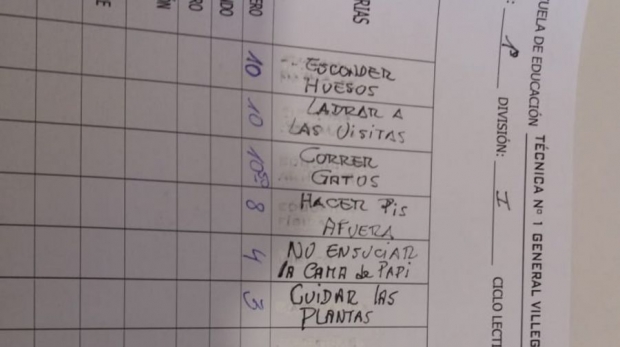 UELA DE EDUCACIÓN TÉCNICA Nº 1 GENERAL VILLEG
: 1º DIVISIÓN: I CICLO LECTI
RIAS
ERO
DO
RO
ÓN
E
ESCONDER
HUESOS
10
LADRAR A
LAS VISITAS
10
CORRER
GATOS
10
HACER PIS
AFUERA
8
NO ENSUCIAR
LA CAMA de PAPI
4
CUIDAR LAS
PLANTAS
3